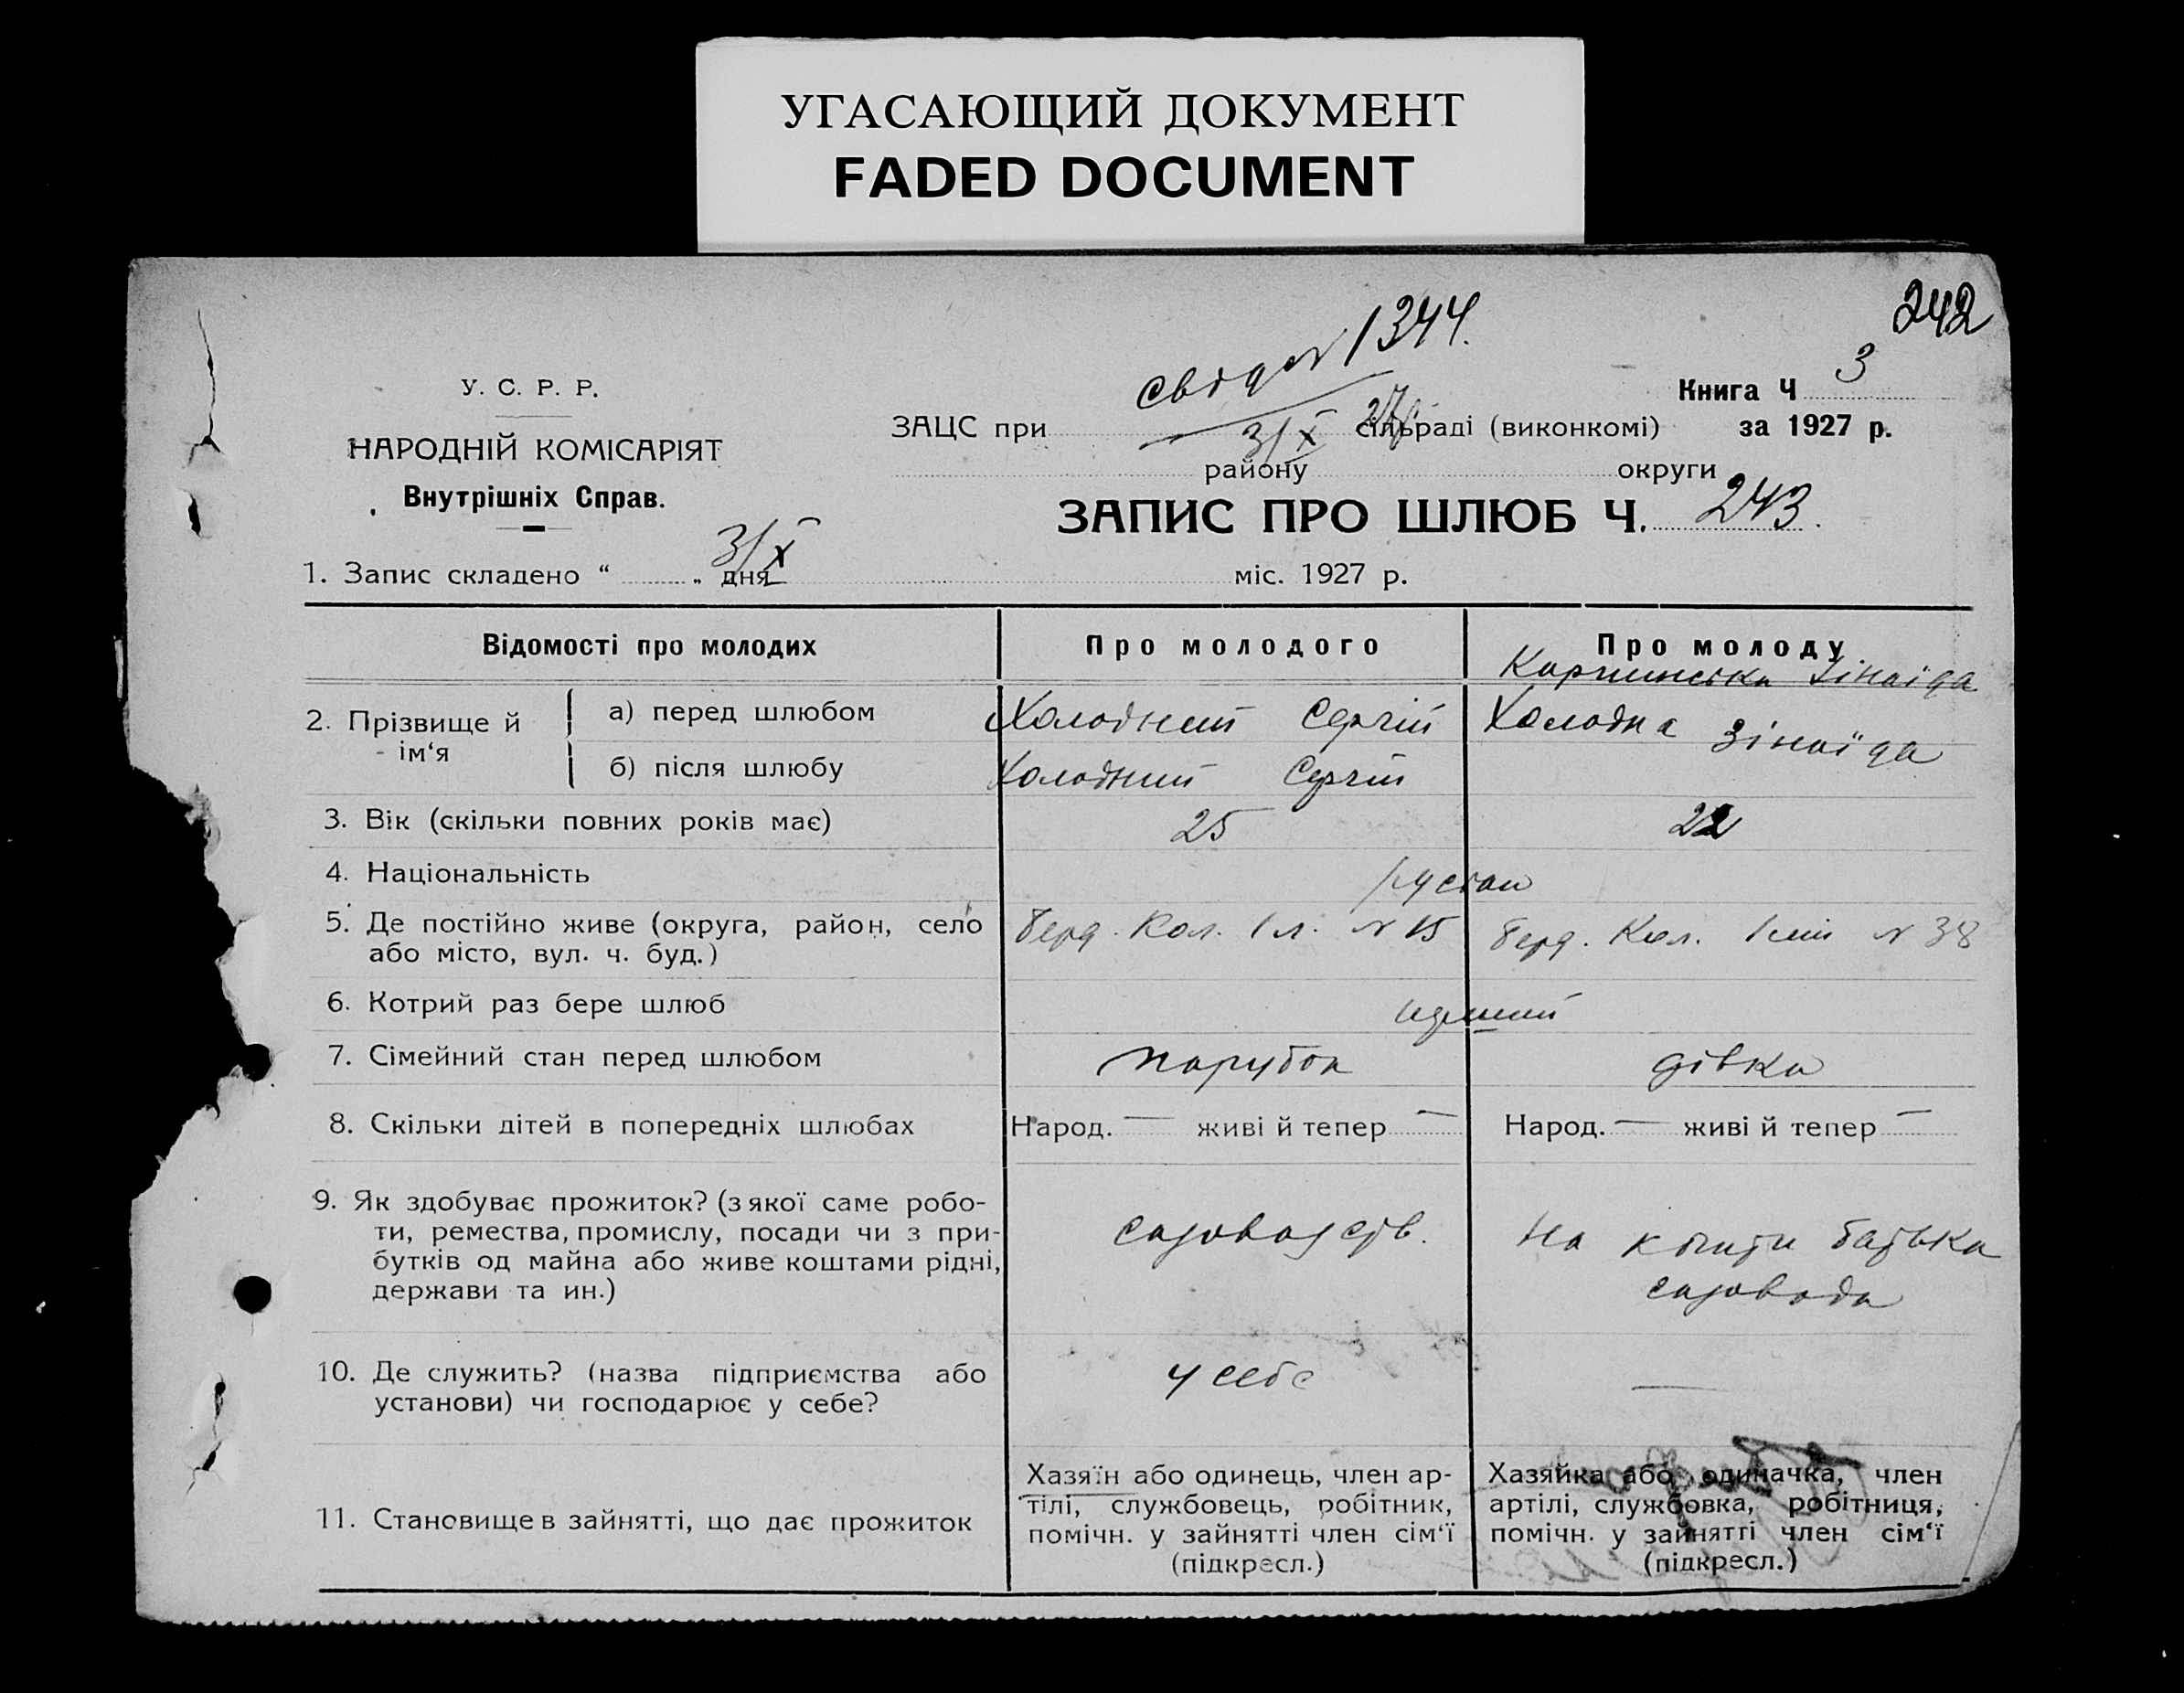 УГАСАЮЩИЙ ДОКУМЕНТ
FADED DOCUMENT
242
1344.
У. С. Р. Р.
НАРОДНІЙ КОМІСАРІЯТ
Внутрішніх Справ.
Книга Ч 3
ЗАЦС при 3/X 27 сільраді (виконкомі) за 1927 р.
району округи
ЗАПИС ПРО ШЛЮБ Ч. 243.
1. Запис складено “ „ дня 3/X міс. 1927 р.
Відомості про молодих Про молодого Про молоду
Зінаїда
2. Прізвище й ім‘я а) перед шлюбом Холодний Сергій Холодна Зінаїда
б) після шлюбу Холодний Сергій
3. Вік (скільки повних років має) 25 22
4. Національність
5. Де постійно живе (округа, район, село Берд. Кол. 1 л. № 15 Берд. Кол. № 38
або місто, вул. ч. буд.)
6. Котрий раз бере шлюб
7. Сімейний стан перед шлюбом парубок дівка
8. Скільки дітей в попередніх шлюбах Народ. — живі й тепер — Народ. — живі й тепер —
9. Як здобуває прожиток? (з якої саме робо-
ти, ремества, промислу, посади чи з при- садоводств. на кошти батька
бутків од майна або живе коштами рідні, садовода
держави та ин.)
10. Де служить? (назва підприємства або у себе —
установи) чи господарює у себе?
11. Становище в зайнятті, що дає прожиток
Хазяїн або одинець, член ар-
тілі, службовець, робітник,
помічн. у зайнятті член сім‘ї
(підкресл.)
Хазяйка або одиначка, член
артілі, службовка, робітниця,
помічн. у зайнятті член сім‘ї
(підкресл.)